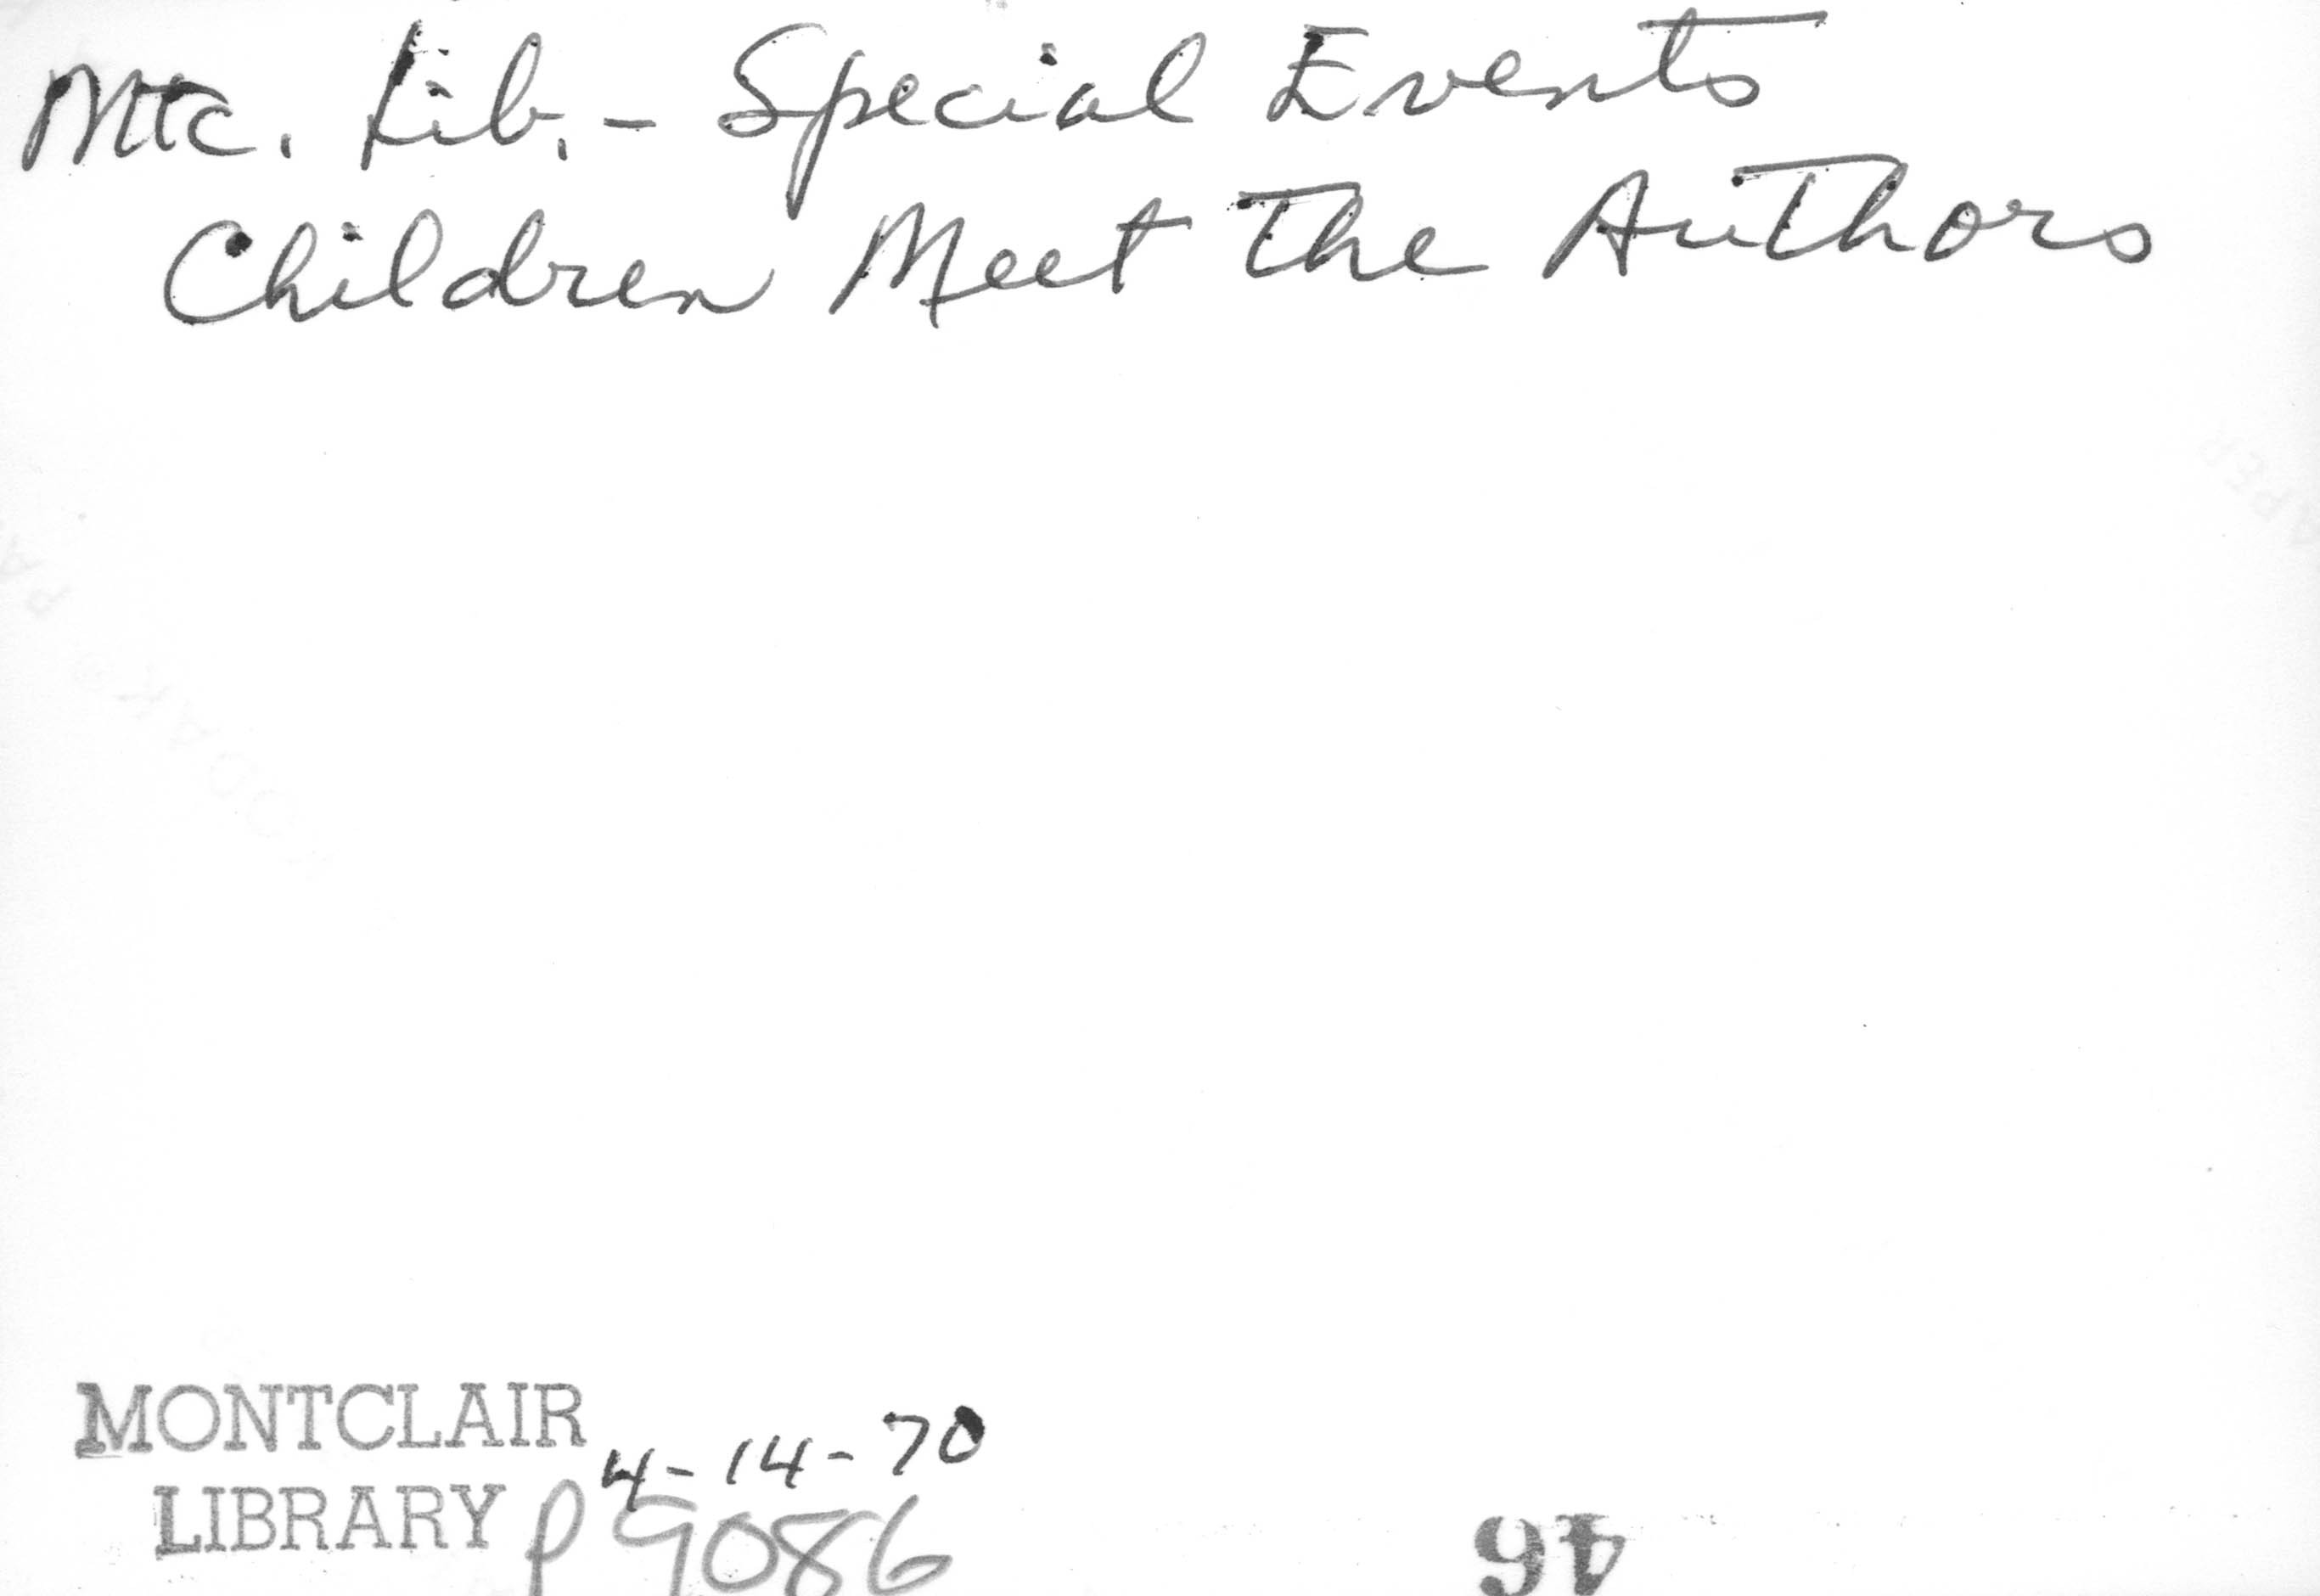 Mtc. Lib. - Special Events
Children Meet The Authors
MONTCLAIR
LIBRARY
4-14-70
P9086
46